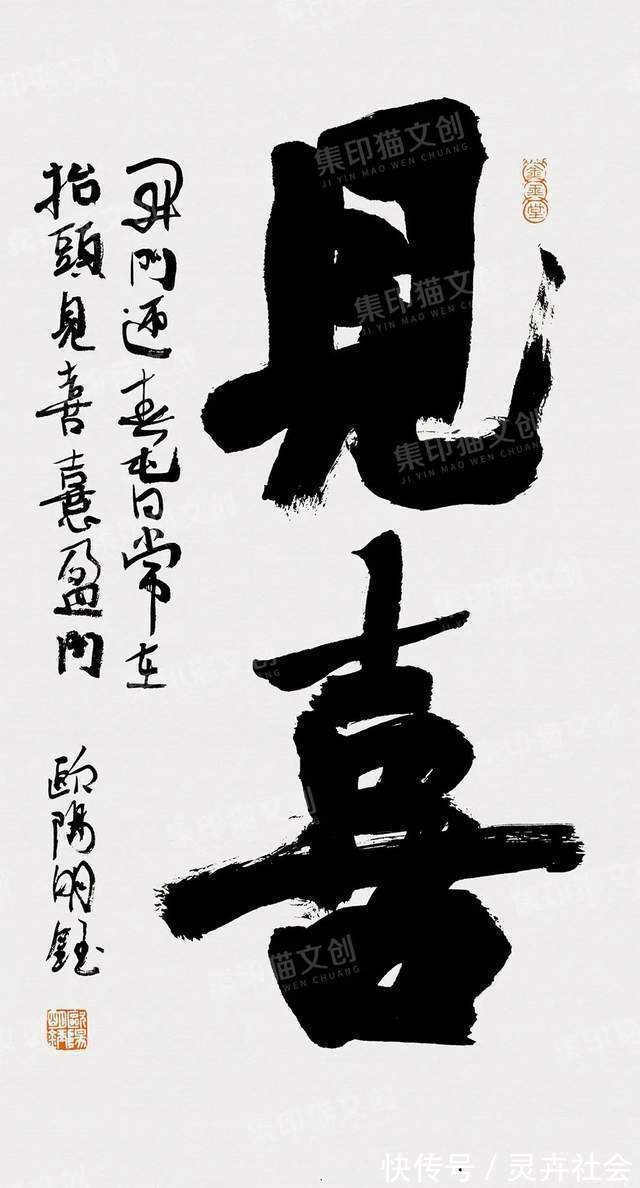 見喜
開門迎春旾常在
抬頭見喜憙盈門
歐陽明鈺
集印猫文创
JI YIN MAO WEN CHUANG
集印猫文创
JI YIN MAO WEN CHUANG
集印猫文创
JI YIN MAO WEN CHUANG
快传号／灵卉社会